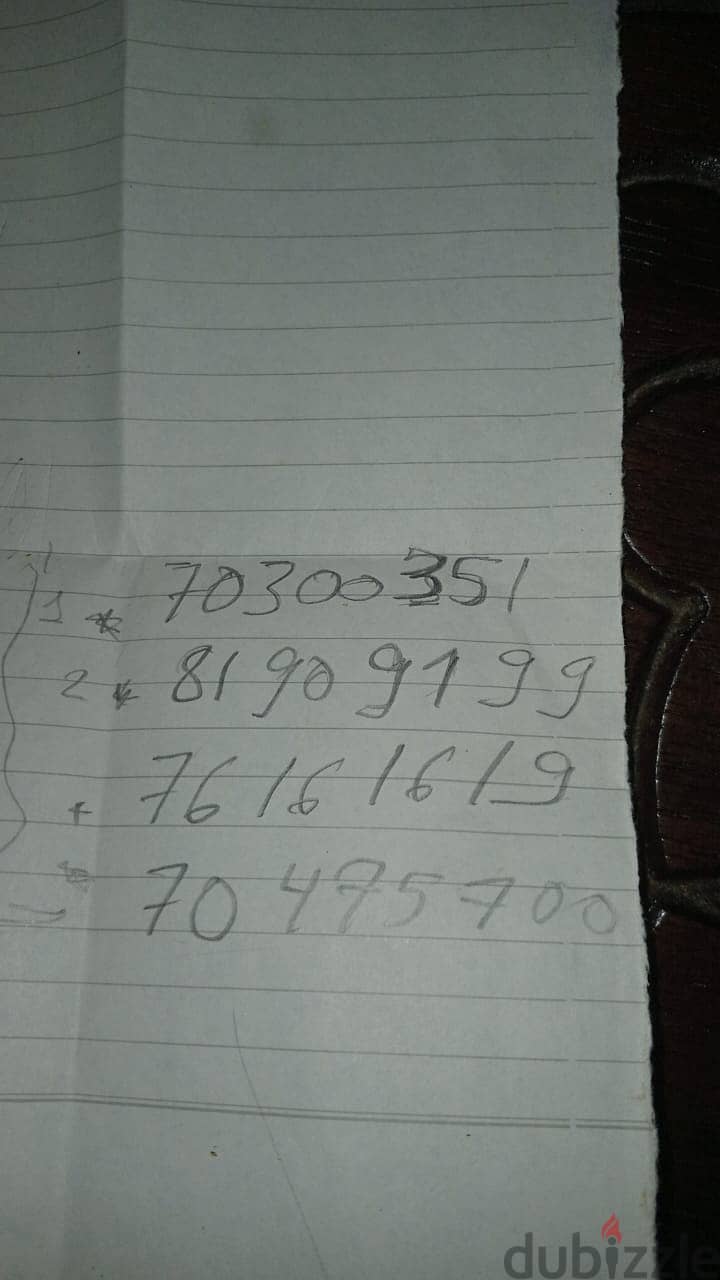 1 * 70300351
2 * 81909199
* 76161619
* 70475700
dubizzle